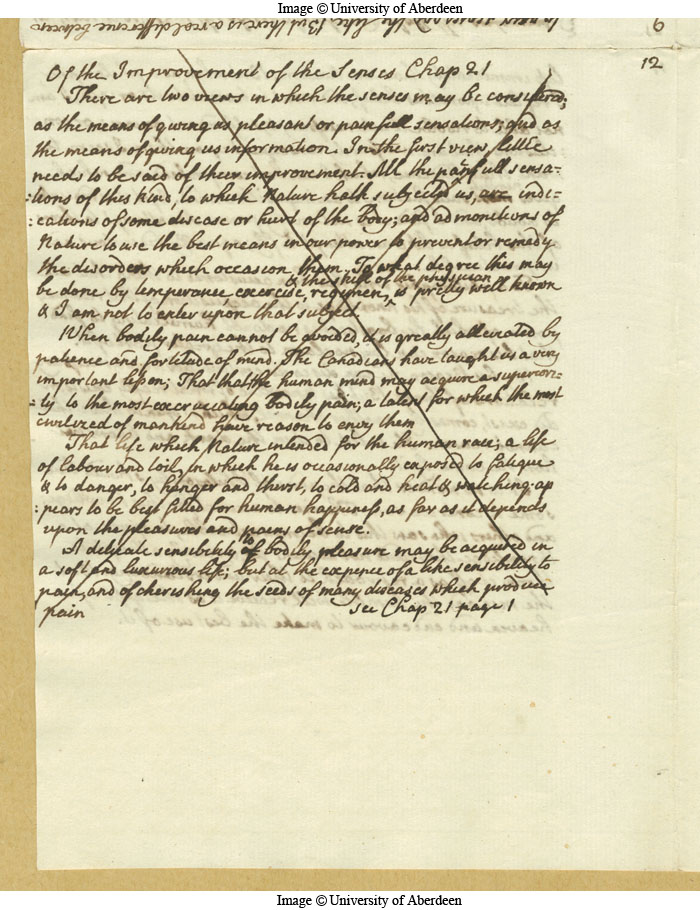 Image © University of Aberdeen
to pain
the like. But there is a real difference between
9
12
Of the Improvement of the Senses Chap 21
There are two views in which the senses may be considered;
as the means of giving us pleasant or painfull sensations; and as
the means of giving us information. In the first view, little
needs to be said of their improvement. All the painfull sensa-
:tions of this kind, to which Nature hath subjected us, are indi-
:cations of some disease or hurt of the body; and admonitions of
Nature to use the best means in our power to prevent or remedy
the disorders which occasion them. To what degree this may
& the skill of the physician
be done by temperance exercise, regimen, is pretty well known
& I am not to enter upon that subject.
When bodily pain cannot be avoided, it is greatly alleviated by
patience and fortitude of mind. The Canadians have taught us a very
important lesson; That that the human mind may acquire a superiori-
:ty to the most excruciating bodily pain; a talent for which the most
civilized of mankind have reason to envy them
That life which Nature intended for the human race; a life
of labour and toil, in which he is occasionally exposed to fatigue
& to danger, to hunger and thirst, to cold and heat & watching ap
:pears to be best fitted for human happiness, as far as it depends
upon the pleasures and pains of sense.
to
A delicate sensibility of bodily pleasure may be acquired in
a soft and luxurious life; but at the expence of a like sensibility to
pain, and of cherishing the seeds of many diseases which produce
pain see Chap 21 page 1
Image © University of Aberdeen